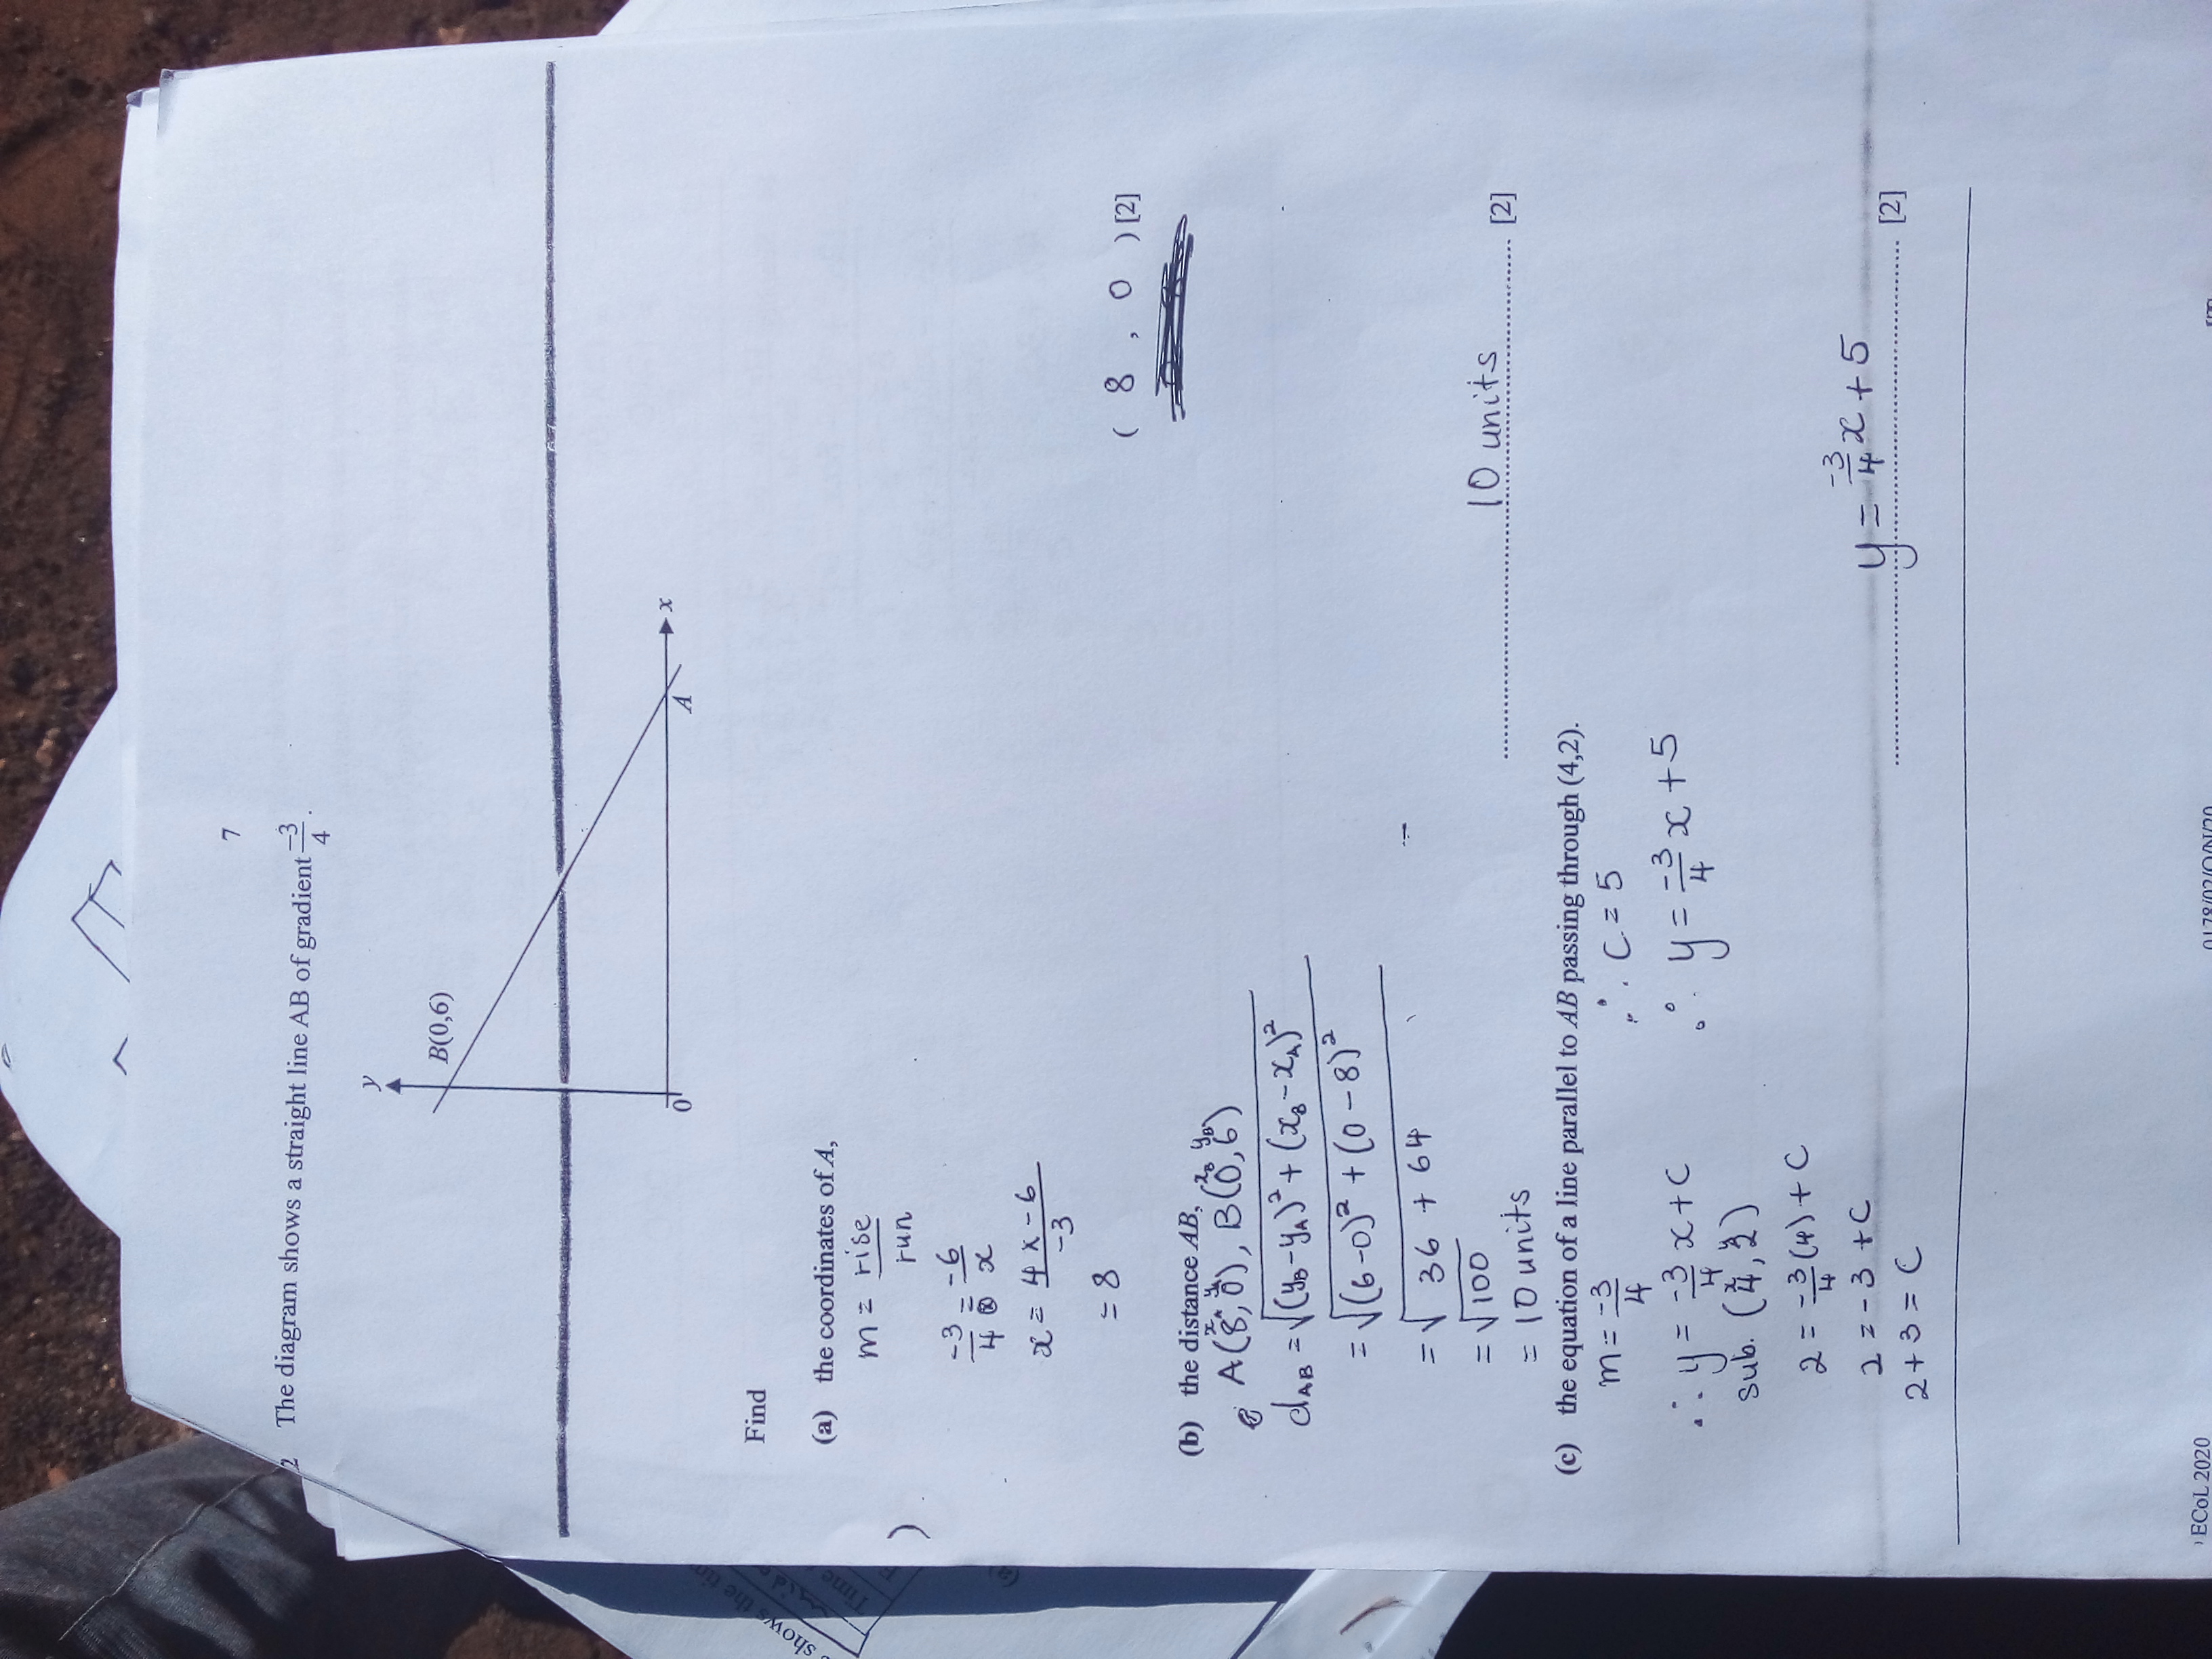 7
2 The diagram shows a straight line AB of gradient -3/4.
y
B(0,6)
0
A
x
shows the tim
Time
Find
(a) the coordinates of A,
m = rise/run
-3/4 = -6/x
x = 4 x -6/-3
= 8
( 8 , 0 ) [2]
(b) the distance AB,
xA yA xB yB
A(8, 0), B(0, 6)
dAB = √(yB-yA)² + (xB-xA)²
= √(6-0)² + (0-8)²
= √36 + 64
= √100
= 10 units
10 units [2]
(c) the equation of a line parallel to AB passing through (4,2).
m = -3/4
∴ y = -3/4 x + c
x y
sub. (4, 2)
2 = -3/4 (4) + c
2 = -3 + c
2 + 3 = c
∴ c = 5
∴ y = -3/4 x + 5
y = -3/4 x + 5 [2]
ECoL 2020
0178/02/O/N/20